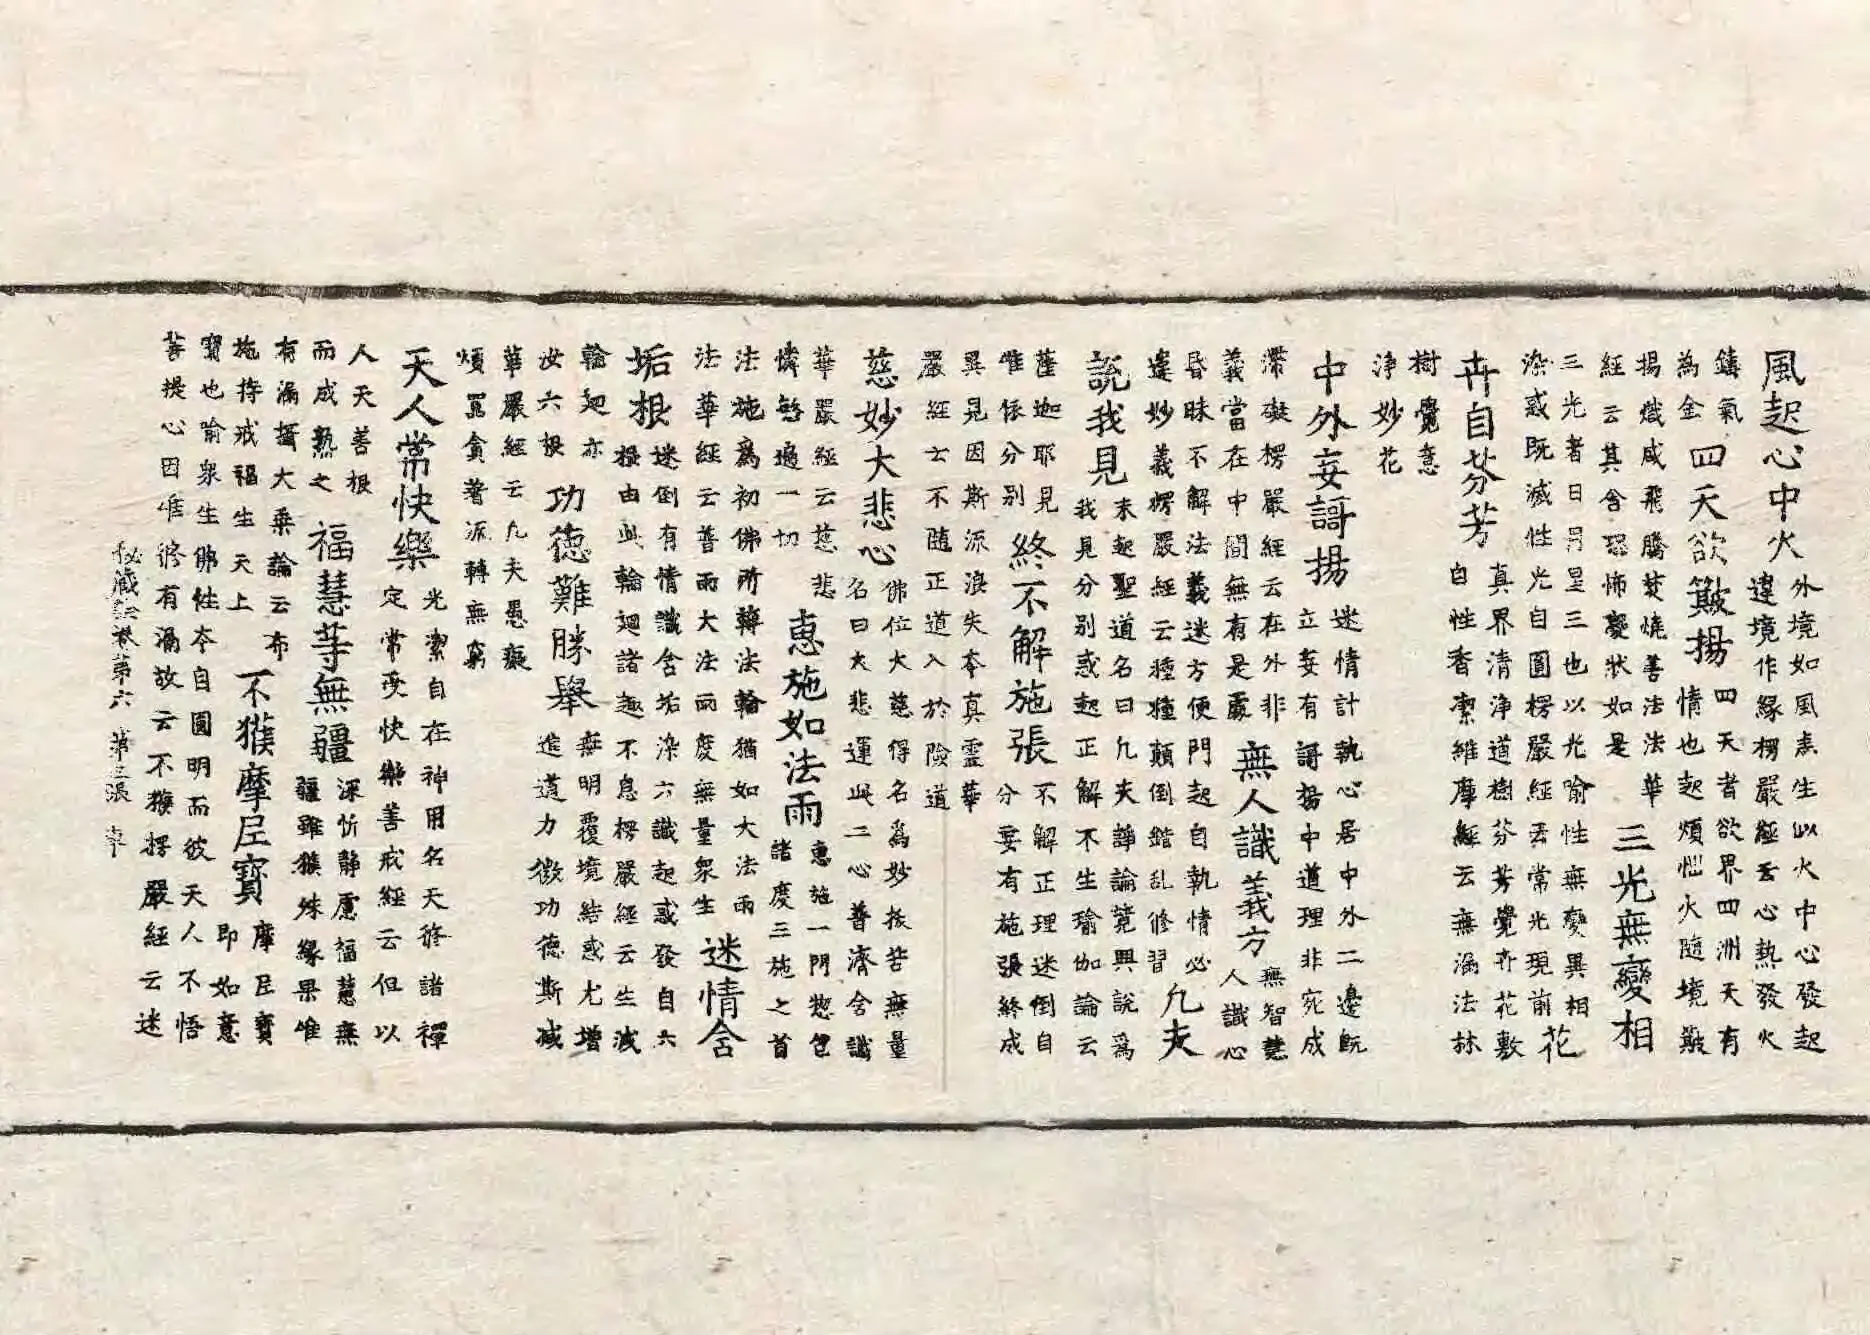 風起心中火外境如風焘生似火中心發起違境作縁楞嚴經云心熱發火
鑄氣為金四天欲簸揚四天者欲界四洲天有情也起煩惱火隨境簸
揚熾咸飛騰焚燒善法法華經云其舍恐怖變狀如是三光無變相
三光者日月星三也以光喻性無變異相染惑既滅性光自圓楞嚴經云常光現前花
卉自芬芳真界清淨道樹芬芳覺卉花敷自性香潔維摩經云無漏法林
樹覺意淨妙花
中外妄謌揚迷情計執心居中外二邊既立妄有謌揚中道理非宛成
滯礙楞嚴經云在外非義當在中間無有是處無人識義方無智慧人識心
昏昧不解法義迷方便門起自執情必違妙義楞嚴經云種種顛倒錯乱修習凡夫
說我見未起聖道名曰凡夫諍論競興說爲我見分別惑起正解不生瑜伽論云
薩迦耶見惟依分別終不解施張不解正理迷倒自分妄有施張終成
異見因斯派浪失本真霊華嚴經云不随正道入於險道
慈妙大悲心佛位大慈得名爲妙拔苦無量名曰大悲運此二心普濟含識
華嚴經云慈悲憐愍遍一切恵施如法雨恵施一門惣包諸度三施之首
法施為初佛所轉法輪猶如大法雨法華經云普雨大法雨度無量衆生迷情含
垢根迷倒有情識含垢染六識起惑發自六根由此輪迴諸趣不息楞嚴經云生滅
輪迴亦汝六根功德難勝舉無明覆境結惑尤增進道力微功德斯減
華嚴經云凡夫愚癡煩冤貪著派轉無窮
天人常快樂光潔自在神用名天修諸禪定常受快樂善戒經云但以
人天善根而成熟之福慧等無疆深忻静慮福慧無疆雖獲殊緣果惟
有漏攝大乗論云布施持戒福生天上不獲摩尼寶摩尼寶即如意
寶也喻衆生佛性本自圓明而彼天人不悟菩提心因惟修有漏故云不獲楞嚴經云迷
秘藏詮卷第六 第三張 車